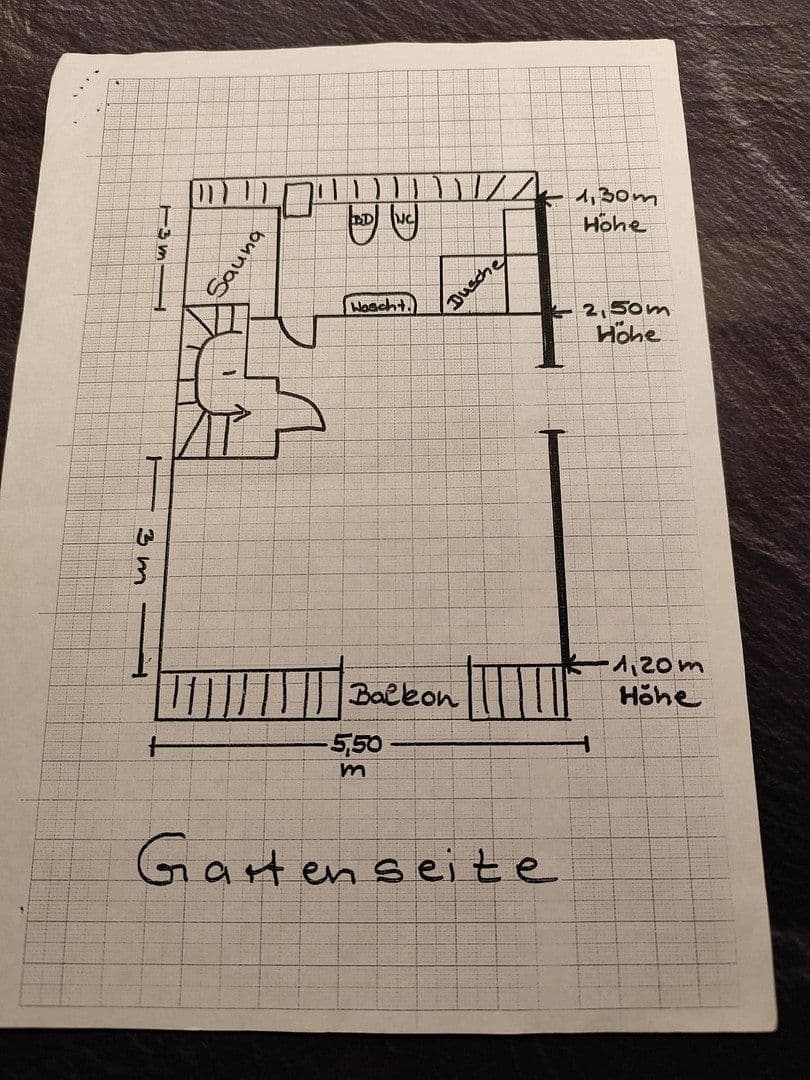 1,30m
Höhe
BD
WC
3m
Sauna
Dusche
Wascht.
2,50m
Höhe
3m
1,20m
Höhe
Balkon
5,50
m
Gartenseite